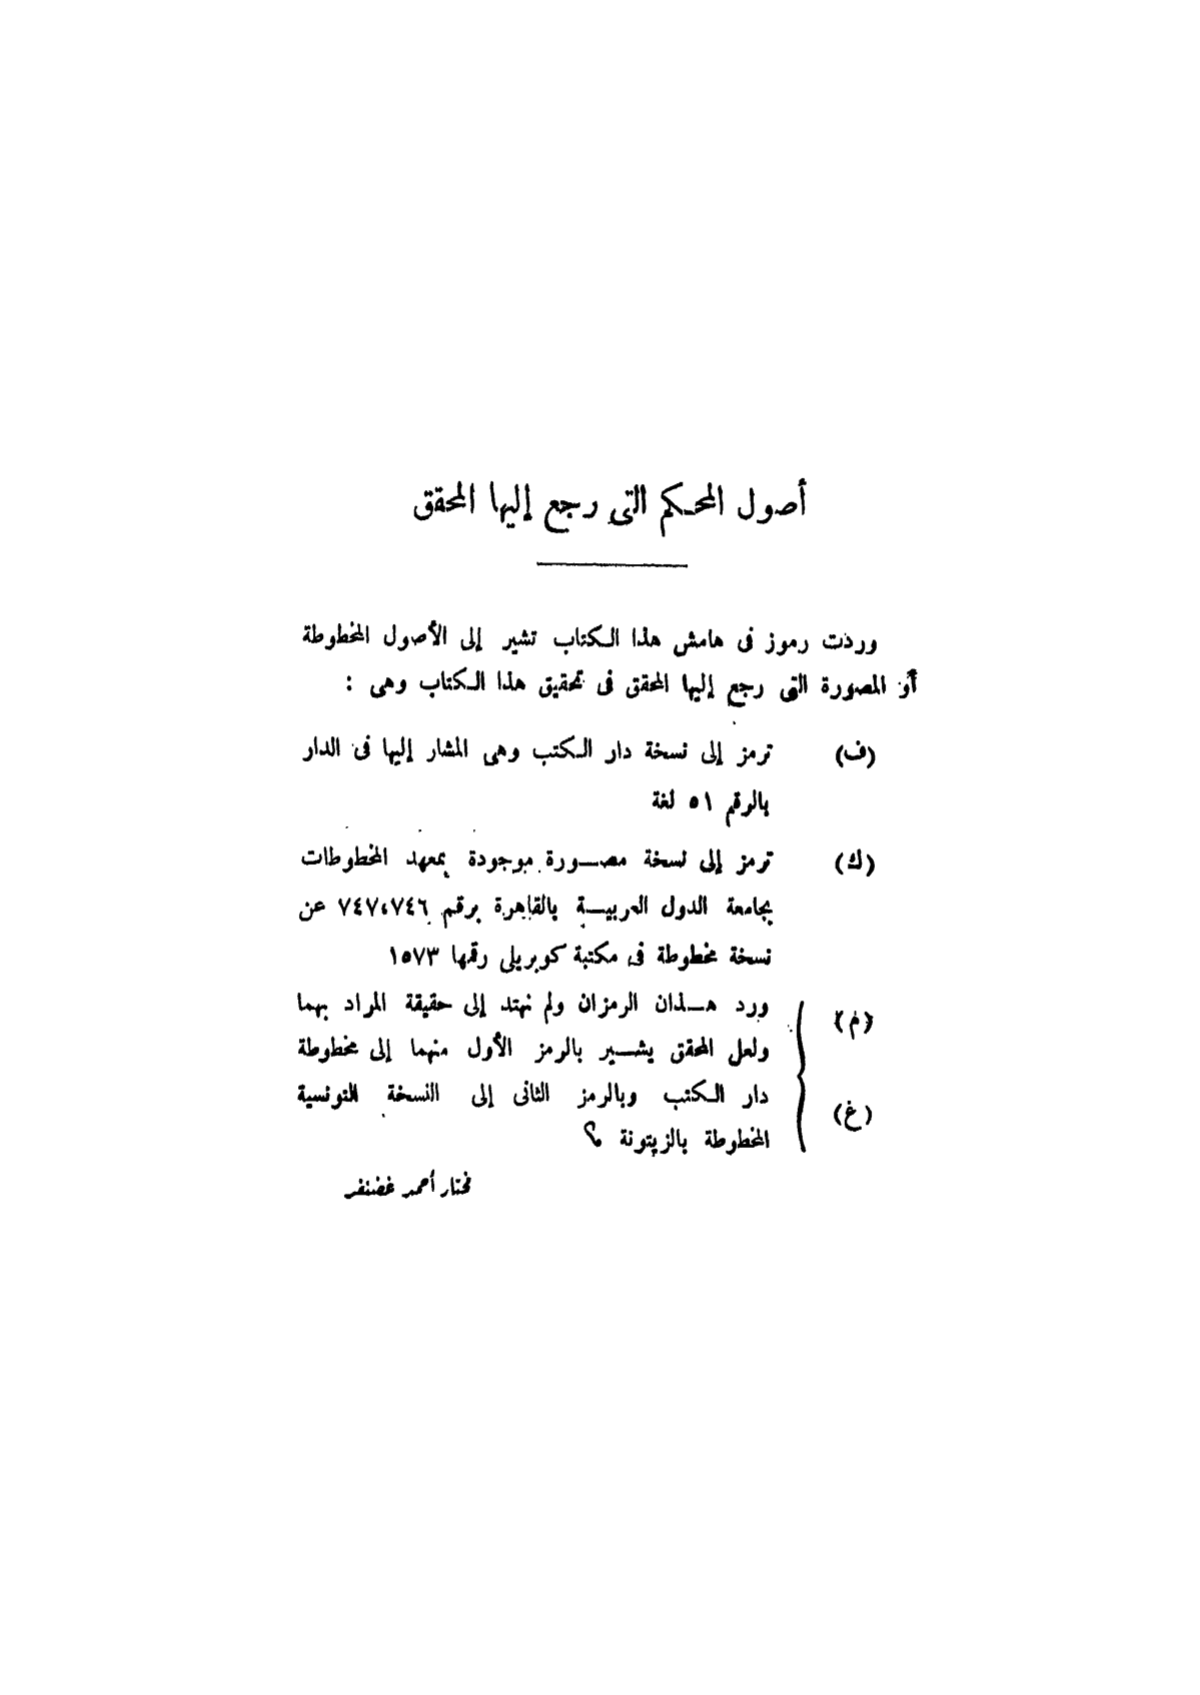 أصول المحكم التى رجع إليها المحقق
وردت رموز فى هامش هذا الكتاب تشير إلى الأصول المخطوطة
أو المصورة التى رجع إليها المحقق فى تحقيق هذا الكتاب وهى :
(ف) ترمز إلى نسخة دار الكتب وهى المشار إليها فى الدار
بالرقم ٥١ لغة
(ك) ترمز إلى نسخة مصورة موجودة بمعهد المخطوطات
بجامعة الدول العربية بالقاهرة برقم ٧٤٧،٧٤٦ عن
نسخة مخطوطة فى مكتبة كوبريلى رقمها ١٥٧٣
(م) ورد هذان الرمزان ولم نهتد إلى حقيقة المراد بهما
ولعل المحقق يشير بالرمز الأول منهما إلى مخطوطة
(غ) دار الكتب وبالرمز الثانى إلى النسخة التونسية
المخطوطة بالزيتونة ؟
مختار أحمد غضنفر